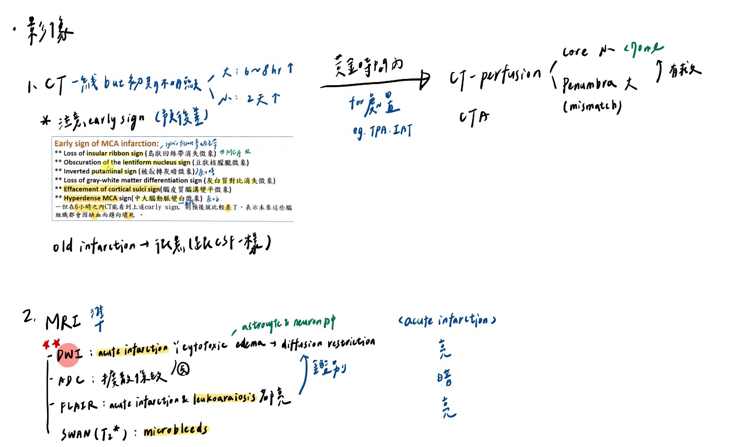 · 影像
1. CT 一線 but 初期不明顯
大：6~8hr ↑
小：2天 ↑
黃金時間內
for 處置
eg. TPA. IAT
CT-perfusion
core 小 gone
Penumbra 大
(mismatch)
↑ 有救
CTA
* 注意 early sign (預後差)
Early sign of MCA infarction:
** Loss of insular ribbon sign (島狀回絲帶消失徵象) → MCA
** Obscuration of the lentiform nucleus sign (豆狀核朦朧徵象)
** Inverted putaminal sign
** Loss of gray-white matter differentiation sign (灰白質對比消失徵象)
** Effacement of cortical sulci sign(腦皮質腦溝變平徵象)
** Hyperdense MCA sign(中大腦動脈變白徵象)
一但在6小時之內CT能看到上述early sign, 則預後就比較差了，表示未來這些腦
組織都會因缺血而趨向壞死。
old infarction → 很黑 (跟CSF一樣)
2. MRI
(acute infarction)
astrocyte & neuron
- DWI : acute infarction cytotoxic edema → diffusion restriction 亮
- ADC : 擴散係數 暗
- FLAIR : acute infarction & leukoaraiosis 都亮 鑑別 亮
SWAN (T2*) : microbleeds